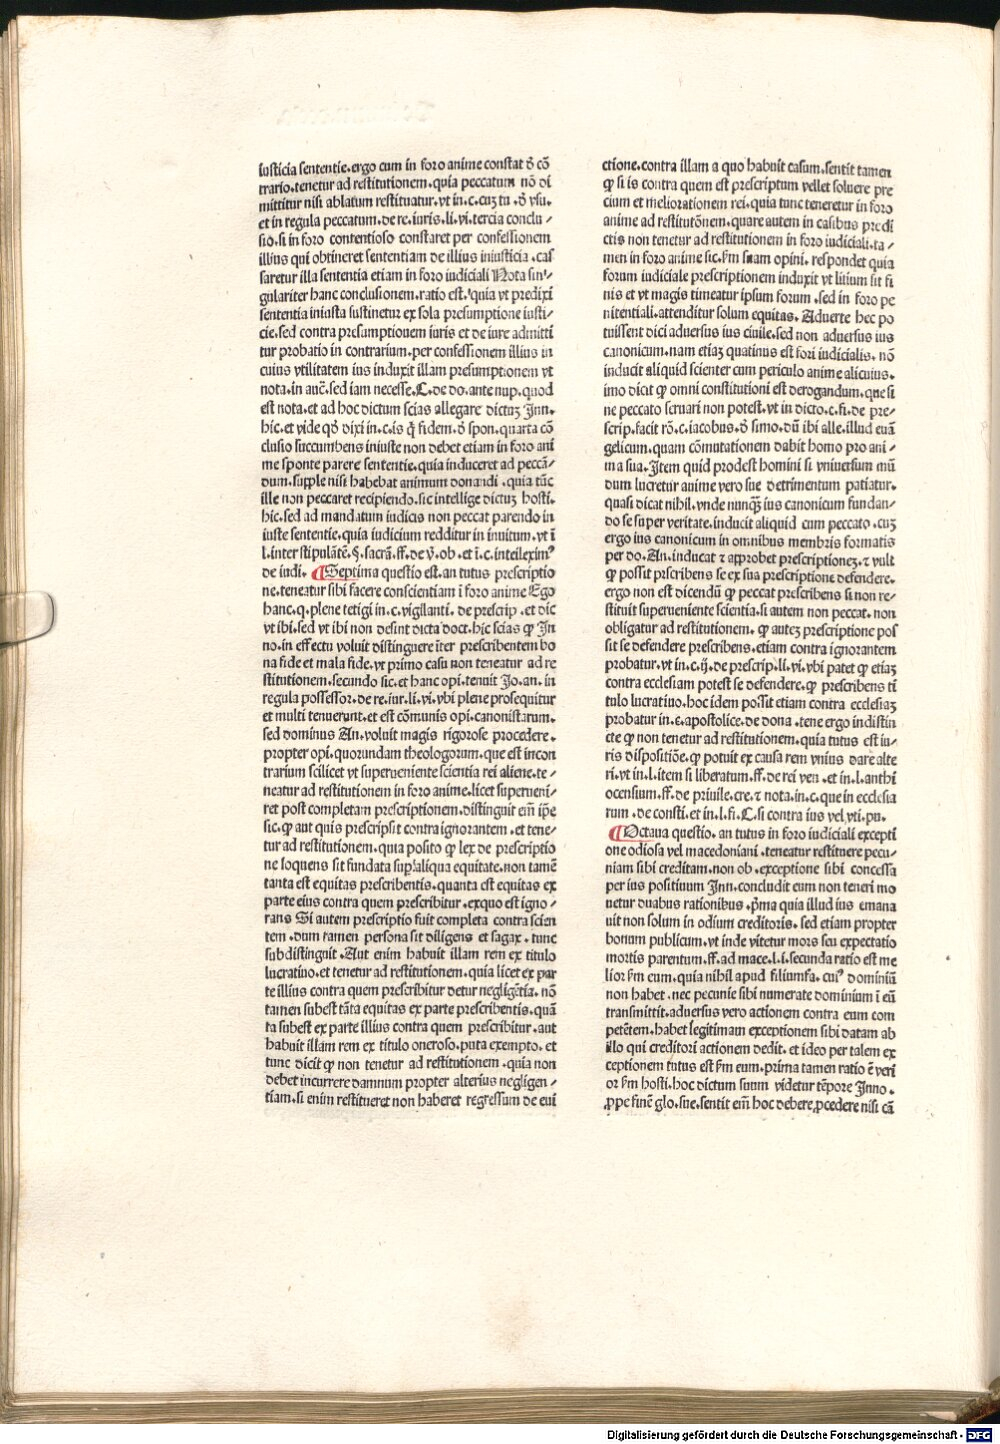 iusticia sententie.ergo cum in foro anime constat ð cō
trario.tenetur ad restitutionem.quia peccatum nō di
mittitur nisi ablatum restituatur.vt in.c.cuȝ tu.ð vsu.
et in regula peccatum.de re.iuris.li.vi.tercia conclu⸗
sio.si in foro contentioso constaret per confessionem
illius qui obtineret sententiam de illius iniusticia.cas
saretur illa sententia etiam in foro iudiciali Nota sin⸗
gulariter hanc conclusionem.ratio est.quia vt predixi
sententia iniusta sustinetur ex sola presumptione iusti⸗
cie.sed contra presumptionem iuris et de iure admitti
tur probatio in contrarium.per confessionem illius in
cuius vtilitatem ius induxit illam presumptionem vt
nota.in auc̄.sed iam necesse.C.de do.ante nup.quod
est nota.et ad hoc dictum scias allegare dictuȝ Inn.
hic.et vide qð dixi in.c.is q̄ fidem.ð spon.quarta cō
clusio succumbens iniuste non debet etiam in foro ani
me sponte parere sententie.quia induceret ad peccā⸗
dum.supple nisi habebat animum donandi.quia tūc
ille non peccaret recipiendo.sic intellige dictuȝ hosti.
hic.sed ad mandatum iudicis non peccat parendo in
iuste sententie.quia iudicium redditur in inuitum.vt ī
l.inter stipulātē.§.sacrā.ff.de ꝟ.ob.et ī.c.intelleximꝰ
de iudi. ¶Septima questio est.an tutus prescriptio
ne.teneatur sibi facere conscientiam ī foro anime Ego
hanc.q.plene tetigi in.c.vigilanti.de prescrip.et dic
vt ibi.sed vt ibi non desint dicta doct.hic scias ꝙ In
no.in effectu voluit distinguere īter prescribentem bo
na fide et mala fide.vt primo casu non teneatur ad re
stitutionem.secundo sic.et hanc opi.tenuit Jo.an.in
regula possessor.de re.iur.li.vi.vbi plene prosequitur
et multi tenuerunt.et est cōmunis opi.canonistarum.
sed dominus An.voluit magis rigorose procedere.
propter opi.quorundam theologorum.que est incon
trarium scilicet vt superueniente scientia rei aliene.te⸗
neatur ad restitutionem in foro anime.licet superueni⸗
ret post completam prescriptionem.distinguit em̄ ip̄e
sic.ꝙ aut quis prescripsit contra ignorantem.et tene⸗
tur ad restitutionem.quia posito ꝙ lex de prescriptio
ne loquens sit fundata sup aliqua equitate.non tamē
tanta est equitas prescribentis.quanta est equitas ex
parte eius contra quem prescribitur.exquo est igno⸗
rans Si autem prescriptio fuit completa contra scien
tem.dum tamen persona sit diligens et sagax.tunc
subdistinguit.Aut enim habuit illam rem ex titulo
lucratiuo.et tenetur ad restitutionem.quia licet ex par
te illius contra quem prescribitur detur negligētia.nō
tamen subest tāta equitas ex parte prescribentis.quā
ta subest ex parte illius contra quem prescribitur.aut
habuit illam rem ex titulo oneroso.puta exempto.et
tunc dicit ꝙ non tenetur ad restitutionem.quia non
debet incurrere damnum propter alterius negligen⸗
tiam.si enim restitueret non haberet regressum de eui
ctione.contra illam a quo habuit casum.sentit tamen
ꝙ si is contra quem est prescriptum vellet soluere pre
cium et meliorationem rei.quia tunc teneretur in foro
anime ad restitutōnem.quare autem in casibus predi
ctis non tenetur ad restitutionem in foro iudiciali.ta⸗
men in foro anime sic.ẜm suam opini.respondet quia
forum iudiciale prescriptionem induxit vt litium sit fi
nis et vt magis timeatur ipsum forum.sed in foro pe
nitentiali.attenditur solum equitas.Aduerte hec po
tuissent dici aduersus ius ciuile.sed non aduersus ius
canonicum.nam etiaȝ quatinus est fori iudicialis.nō
inducit aliquid scienter cum periculo anime alicuius.
imo dicit ꝙ omni constitutioni est derogandum.que si
ne peccato seruari non potest.vt in dicto.c.fi.de pre⸗
scrip.facit rō.c.iacobus.ð simo.dū ibi alle.illud euā
gelicum.quam cōmutationem dabit homo pro ani⸗
ma sua.Item quid prodest homini si vniuersum mū
dum lucretur anime vero sue detrimentum patiatur.
quasi dicat nihil.vnde nunqȝ ius canonicum fundan⸗
do se super veritate.inducit aliquid cum peccato.cuȝ
ergo ius canonicum in omnibus membris formatis
per do.An.inducat ⁊ approbet prescriptioneȝ.⁊ vult
ꝙ possit prscribens se ex sua prescriptione defendere.
ergo non est dicendū ꝙ peccat prescribens si non re⸗
stituit superueniente scientia.si autem non peccat.non
obligatur ad restitutionem.ꝙ auteȝ prescriptione pos
sit se defendere prescribens.etiam contra ignorantem
probatur.vt in.c.ij.de prescrip.li.vi.vbi patet ꝙ etiaȝ
contra ecclesiam potest se defendere.ꝙ prescribens ti
tulo lucratiuo.hoc idem possit etiam contra ecclesiaȝ
probatur in.c.apostolice.de dona.tene ergo indistin
cte ꝙ non tenetur ad restitutionem.quia tutus est iu⸗
ris dispositiōe.ꝙ potuit ex causa rem vnius dare alte
ri.vt in.l.item si liberatum.ff.de rei ven.et in.l.anthi
ocensium.ff.de priuile.cre.⁊ nota.in.c.que in ecclesia
rum.de consti.et in.l.fi.C.si contra ius vel vti.pu.
¶Octaua questio.an tutus in foro iudiciali excepti
one odiosa vel macedoniani.teneatur restituere pecu⸗
niam sibi creditam.non ob.exceptione sibi concessa
per ius positiuum Inn.concludit eum non teneri mo
uetur duabus rationibus.p̄ma quia illud ius emana
uit non solum in odium creditoris.sed etiam propter
bonum publicum.vt inde vitetur mors seu expectatio
mortis parentum.ff.ad mace.l.i.secunda ratio est me
lior ẜm eum.quia nihil apud filiumfa.cuiꝰ dominiū
non habet.nec pecunie sibi numerate dominium ī eū
transmittit.aduersus vero actionem contra eum com
petētem.habet legitimam exceptionem sibi datam ab
illo qui creditori actionem dedit.et ideo per talem ex
ceptionem tutus est ẜm eum.prima tamen ratio ē veri
or ẜm hosti.hoc dictum suum videtur tēpore Inno.
ꝓpe finē glo.sue.sentit em̄ hoc debere ꝓcedere nisi cā
Digitalisierung gefördert durch die Deutsche Forschungsgemeinschaft - DFG